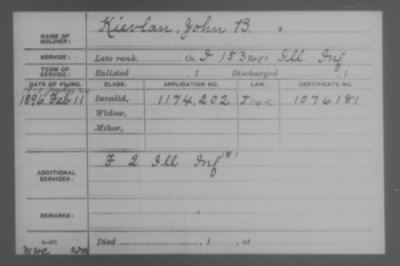 NAME OF SOLDIER: Kievlan, John B.
SERVICE: Late rank, Co. I 153 Reg't Ill. Inf
TERM OF SERVICE: Enlisted , 1 Discharged , 1
DATE OF FILING. CLASS. APPLICATION NO. LAW. CERTIFICATE NO.
1896 Feb 11 Invalid, 1174,202 1076181
Widow,
Minor,
ADDITIONAL SERVICES: F 2 Ill Inf
REMARKS:
Died , 1 , at